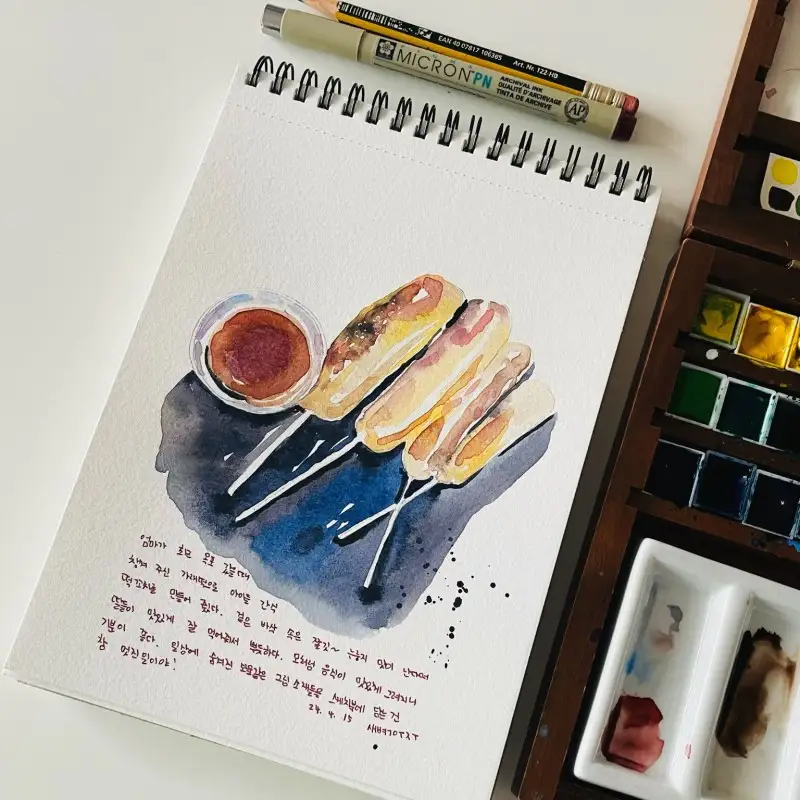 EAN 40 07817 106365 Art. Nr. 122-HB
MICRON PN
ARCHIVAL INK
QUALITÉ D'ARCHIVAGE
TINTA DE ARCHIVE
AP
엄마가
챙겨 주신 가래떡으로 아이들 간식
떡꼬치를 만들어 줬다. 겉은 바삭 속은 쫄깃~ 누룽지 맛이 난다며
딸들이 맛있게 잘 먹어줘서 뿌듯하다. 모처럼 음식이 맛있게 그려지니
기분이 좋다. 일상에 숨겨진 보물같은 그림 소재들을 스케치북에 담는 건
참 멋진일이야!
24. 4. 15